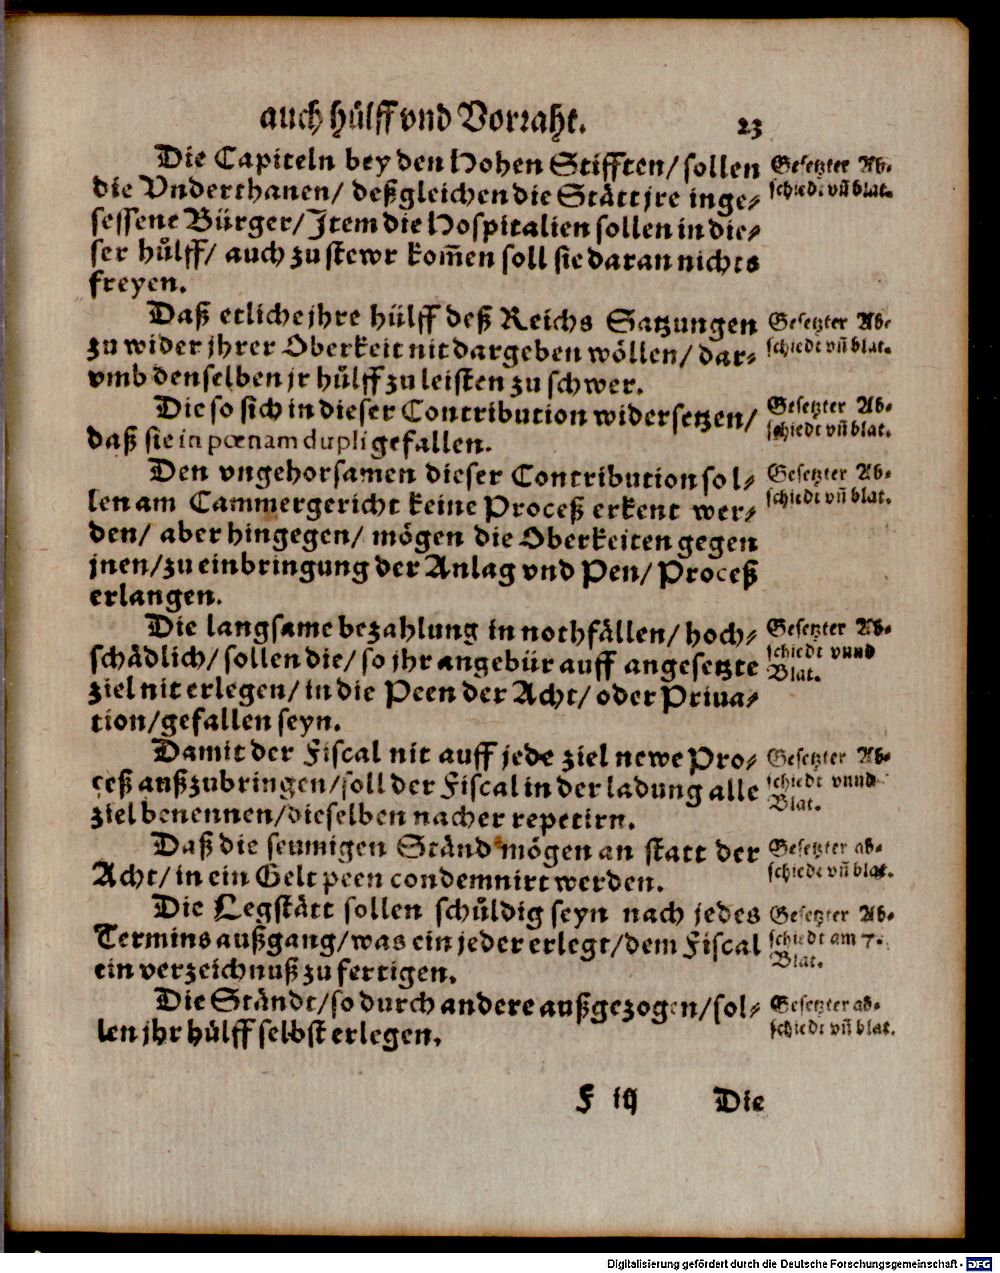 auch hülff vnd Vorraht. 23
Die Capiteln bey den Hohen Stifften/ sollen
die Vnderthanen/ deßgleichen die Stätt jre inge-
sessene Bürger/ Item die Hospitalien sollen in die-
ser hülff/ auch zu stewr kom̃en soll sie daran nichts
freyen.
Gesetzter Ab-
schied. vñ blat.
Daß etliche jhre hülff deß Reichs Satzungen
zu wider jhrer Oberkeit nit dargeben wöllen/ dar-
vmb denselben jr hülff zu leisten zu schwer.
Gesetzter Ab-
schiedt vñ blat.
Die so sich in dieser Contribution widersetzen/
daß sie in pœnam dupli gefallen.
Gesetzter Ab-
schiedt vñ blat.
Den vngehorsamen dieser Contribution sol-
len am Cammergericht keine Proceß erkent wer-
den/ aber hingegen/ mögen die Oberkeiten gegen
jnen/ zu einbringung der Anlag vnd Pen/ Proceß
erlangen.
Gesetzter Ab-
schiedt vñ blat.
Die langsame bezahlung in nothfällen/ hoch-
schädlich/ sollen die/ so jhr angebür auff angesetzte
ziel nit erlegen/ in die Peen der Acht/ oder Priua-
tion/ gefallen seyn.
Gesetzter Ab-
schiedt vnnd
Blat.
Damit der Fiscal nit auff jede ziel newe Pro-
ceß außzubringen/ soll der Fiscal in der ladung alle
ziel benennen/ dieselben nacher repetirn.
Gesetzter Ab-
schiedt vnnd
Blat.
Daß die seumigen Ständ mögen an statt der
Acht/ in ein Gelt peen condemnirt werden.
Gesetzter ab-
schiedt vñ blat.
Die Legstätt sollen schüldig seyn nach jedes
Termins außgang/ was ein jeder erlegt/ dem Fiscal
ein verzeichnuß zu fertigen.
Gesetzter Ab-
schiedt am 7.
Blat.
Die Ständt/ so durch andere außgezogen/ sol-
len jhr hülff selbst erlegen.
Gesetzter ab-
schiedt vñ blat.
F iij Die
Digitalisierung gefördert durch die Deutsche Forschungsgemeinschaft - DFG